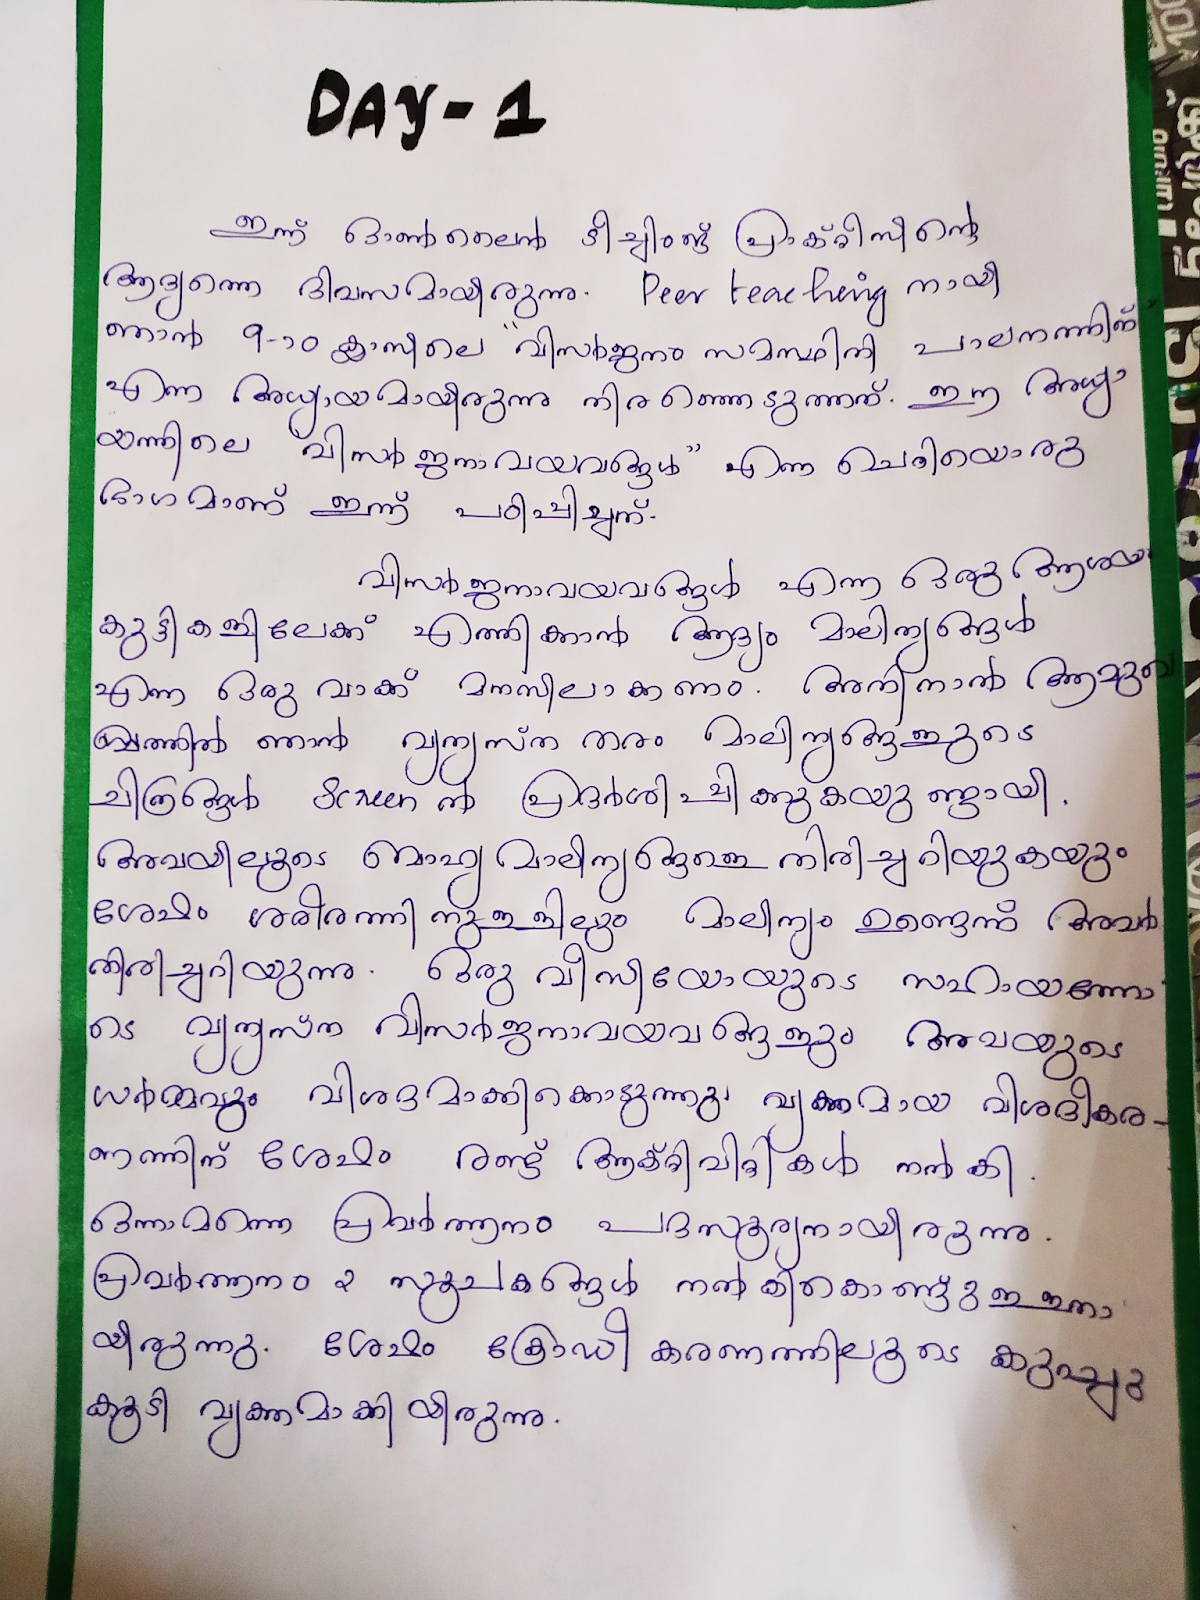 DAY-1
ഇന്ന് ഓൺലൈൻ ടീച്ചിംങ്ങ് പ്രാക്ടീസിന്റെ
ആദ്യത്തെ ദിവസമായിരുന്നു. Peer teaching നായി
ഞാൻ 9-ാം ക്ലാസിലെ "വിസർജനം സമസ്ഥിതി പാലനത്തിന്"
എന്ന അധ്യായമായിരുന്നു തിരഞ്ഞെടുത്തത്. ഈ അധ്യാ
യത്തിലെ "വിസർജനാവയവങ്ങൾ" എന്ന ചെറിയൊരു
ഭാഗമാണ് ഇന്ന് പഠിപ്പിച്ചത്.
വിസർജനാവയവങ്ങൾ എന്ന ഒരു ആശയം
കുട്ടികളിലേക്ക് എത്തിക്കാൻ ആദ്യം മാലിന്യങ്ങൾ
എന്ന ഒരു വാക്ക് മനസിലാക്കണം. അതിനാൽ
ഞാൻ വ്യത്യസ്ത തരം മാലിന്യങ്ങളുടെ
ചിത്രങ്ങൾ Screen ൽ പ്രദർശിപ്പിക്കുകയുണ്ടായി.
അവയിലൂടെ ബാഹ്യ മാലിന്യങ്ങളെ തിരിച്ചറിയുകയും
ശേഷം ശരീരത്തിനുള്ളിലും മാലിന്യം ഉണ്ടെന്ന് അവർ
തിരിച്ചറിയുന്നു. ഒരു വീഡിയോയുടെ സഹായത്തോ
ടെ വ്യത്യസ്ത വിസർജനാവയവങ്ങളും അവയുടെ
ധർമ്മവും വിശദമാക്കിക്കൊടുത്തു. വ്യക്തമായ വിശദീകര-
ണത്തിന് ശേഷം രണ്ട് ആക്ടിവിറ്റികൾ നൽകി.
ഒന്നാമത്തെ പ്രവർത്തനം പദസൂര്യനായിരുന്നു.
പ്രവർത്തനം 2 സൂചകങ്ങൾ നൽകികൊണ്ടുള്ളതാ
യിരുന്നു. ശേഷം ക്രോഡീകരണത്തിലൂടെ കുറച്ചു
കൂടി വ്യക്തമാക്കിയിരുന്നു.